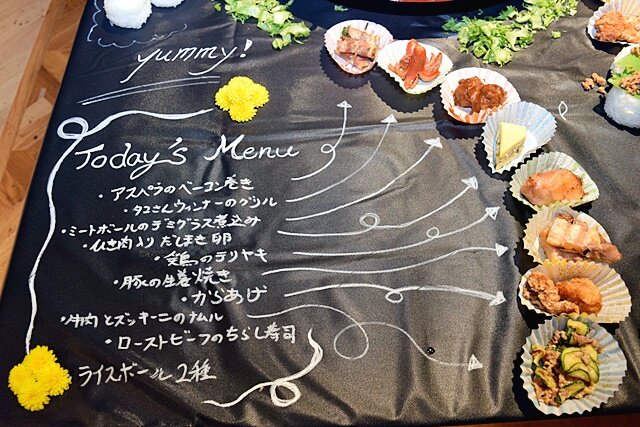 yummy!
Today's Menu
・アスパラのベーコン巻き
・タコさんウィンナーのグリル
・ミートボールのデミグラス煮込み
・ひき肉入りだしまき卵
・鶏のテリヤキ
・豚の生姜焼き
・からあげ
・牛肉とズッキーニのナムル
・ローストビーフのちらし寿司
ライスボール2種